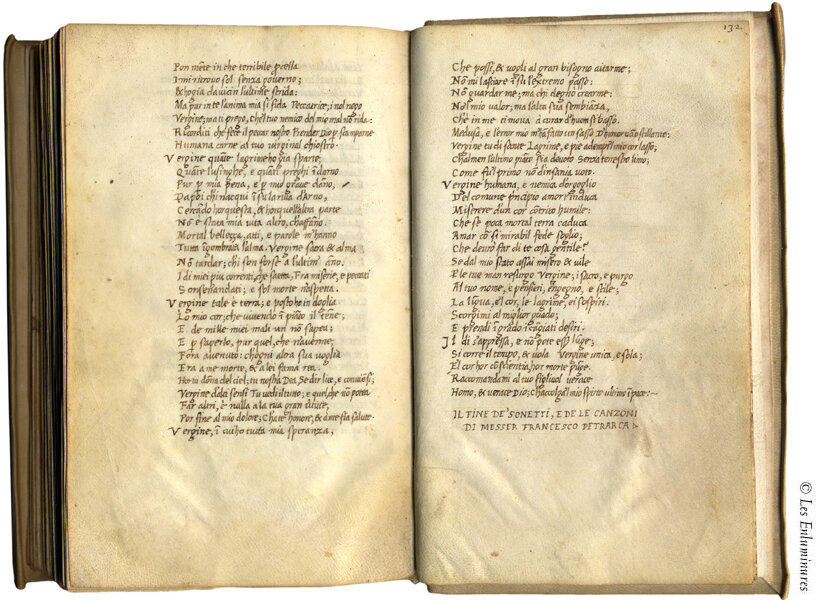 Pon mēte in che terribile p̱cella
I mi ritrovo sol senza governo;
& ho gia da vicin l'ultime strida:
Ma pur in te l'anima mia si fida Peccatrice; i nol nego
Vergine; ma ti prego, che'l tuo nemico del mio mal nō rida:
Ricorditi che fece il peccar nostro Prender Dio p̱ scamparne
Humana carne al tuo virginal chiostro.
Vergine quāte lagrime ho gia sparte,
Quāte lusinghe, e quāti preghi īdarno
Pur p̱ mia pena, e p̱ mio grave dāno,
Da poi ch'i nacqui ī su la riva d'Arno,
Cercādo hor questa, & hor quell'altra parte
Nō è stata mia vita altro, ch'affāno.
Mortal bellezza, atti, e parole m'hanno
Tutta īgombrata l'alma. Vergine sacra & alma
Nō tardar; ch'i son forse a l'ultim' āno.
I di miei piu correnti, che saetta, Fra miserie, e peccati
Sonsen andati; e sol morte n'aspetta.
Vergine tale è terra; e posto ha in doglia
Lo mio cor; che vivendo ī piāto il tēne;
E de mille miei mali un nō sapea;
E p̱ saperlo, pur quel, che n'avenne,
Fora avenuto: ch'ogni altra sua voglia
Era a me morte, & a lei fama rea.
Hor tu dōna del ciel; tu nostra Dea, Se dir lice, e conviēsi;
Vergine d'alti sensi Tu vedi il tutto; e quel, che nō potea
Far altri, è nulla a la tua gran vītute,
Por fine al mio dolore; Ch'a te honore, & a me fia salute.
Vergine, ī cui ho tutta mia speranza,
132
Che possi, & vogli al gran bisogno aitarme;
Nō mi lasciare ī su l'extremo passo:
Nō guardar me; ma chi degnò crearme:
Nō'l mio valor; ma l'alta sua sembiāza,
Ch'è in me ti mova à curar d'huom si basso.
Medusa, e l'error mio m'hā fatto un sasso D'humor vāo stillante:
Vergine tu di sante Lagrime, e pie adempi'l mio cor lasso;
Ch'almen l'ultimo piāto sia devoto Senza terrestro limo;
Come fu'l primo nō d'insania voto.
Vergine humana, e nemica d'orgoglio
Del comune prīcipo amor t'īduca
Miserere d'un cor cōtrito humile:
Che se poca mortal terra caduca
Amar cō si mirabil fede soglio;
Che devrò far di te cosa gentile?
Se dal mio stato assai misero & vile
P̱ le tue man resurgo Vergine; i sacro, e purgo
Al tuo nome, e pensieri, engegno, e stile;
La līgua, e'l cor, le lagrime, e i sospiri.
Scorgimi al miglior guado;
E prendi ī grado i cāgiati desiri.
Il di s'appressa, e nō pote esser lunge;
Si corre il tempo, & vola Vergine unica, e sola;
E'l cor hor cōscientia, hor morte pūge.
Raccomandami al tuo figliuol verace
Homo, & verace Dio; Ch'accolga'l mio spirto ultimo in pace:~
IL FINE DE' SONETTI, E DE LE CANZONI
DI MESSER FRANCESCO PETRARCA
© Les Enluminures